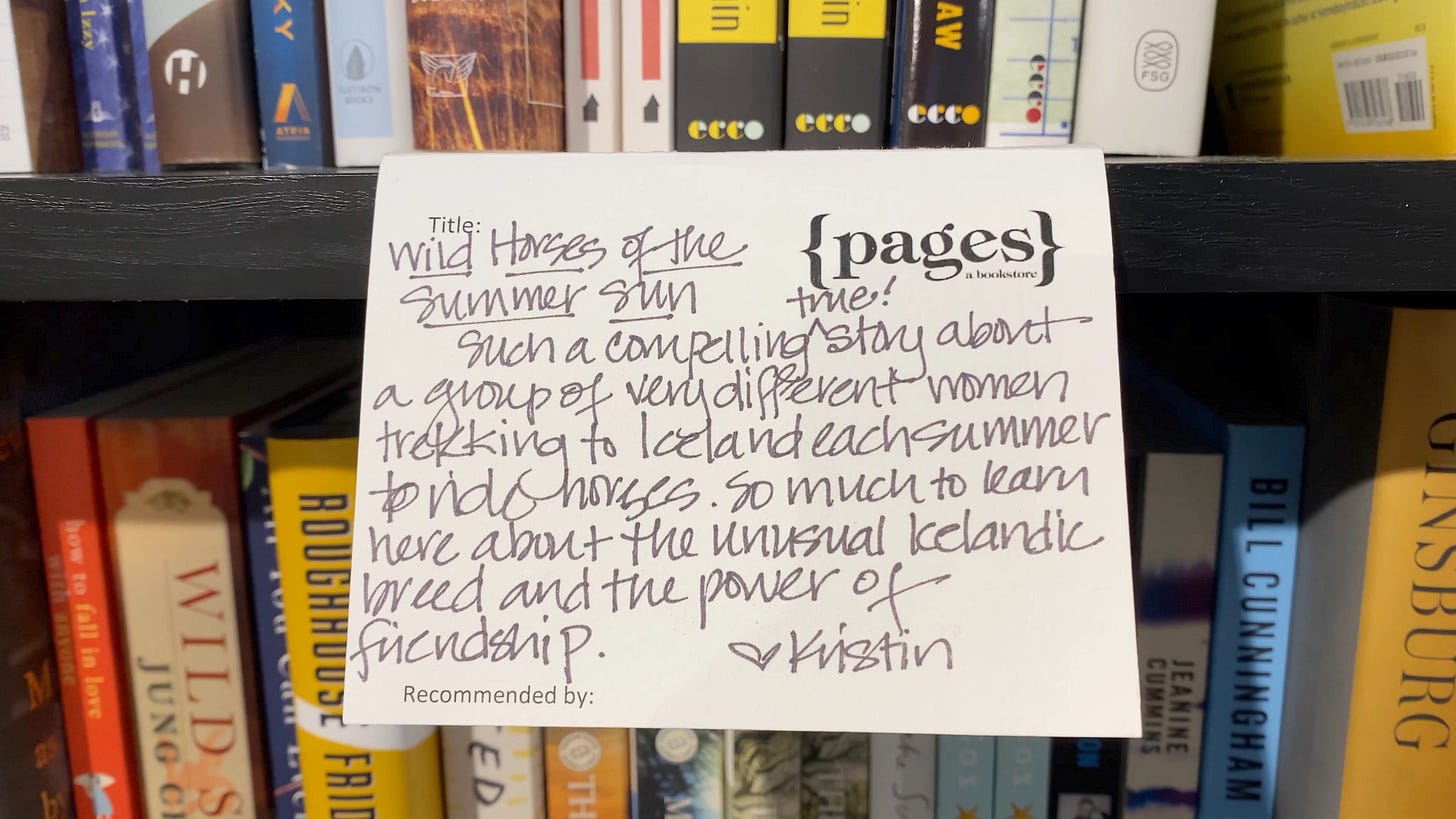 Izzy
H
KY
ATRIA
FLATIRON
BOOKS
in
ecco
in
ecco
AW
ecco
FSG
Title:
Wild Horses of the
Summer Sun
{pages}
a bookstore
true!
Such a compelling ^ story about
a group of very different women
trekking to Iceland each summer
to ride horses. So much to learn
here about the unusual Icelandic
breed and the power of
friendship.
♡ Kristin
Recommended by:
how to fall in love
with anyone
WILD S
JUNG C
ROUGHHOUSE FRID
ED
TH
M
JEANINE
CUMMINS
BILL CUNNINGHAM
GINSBURG